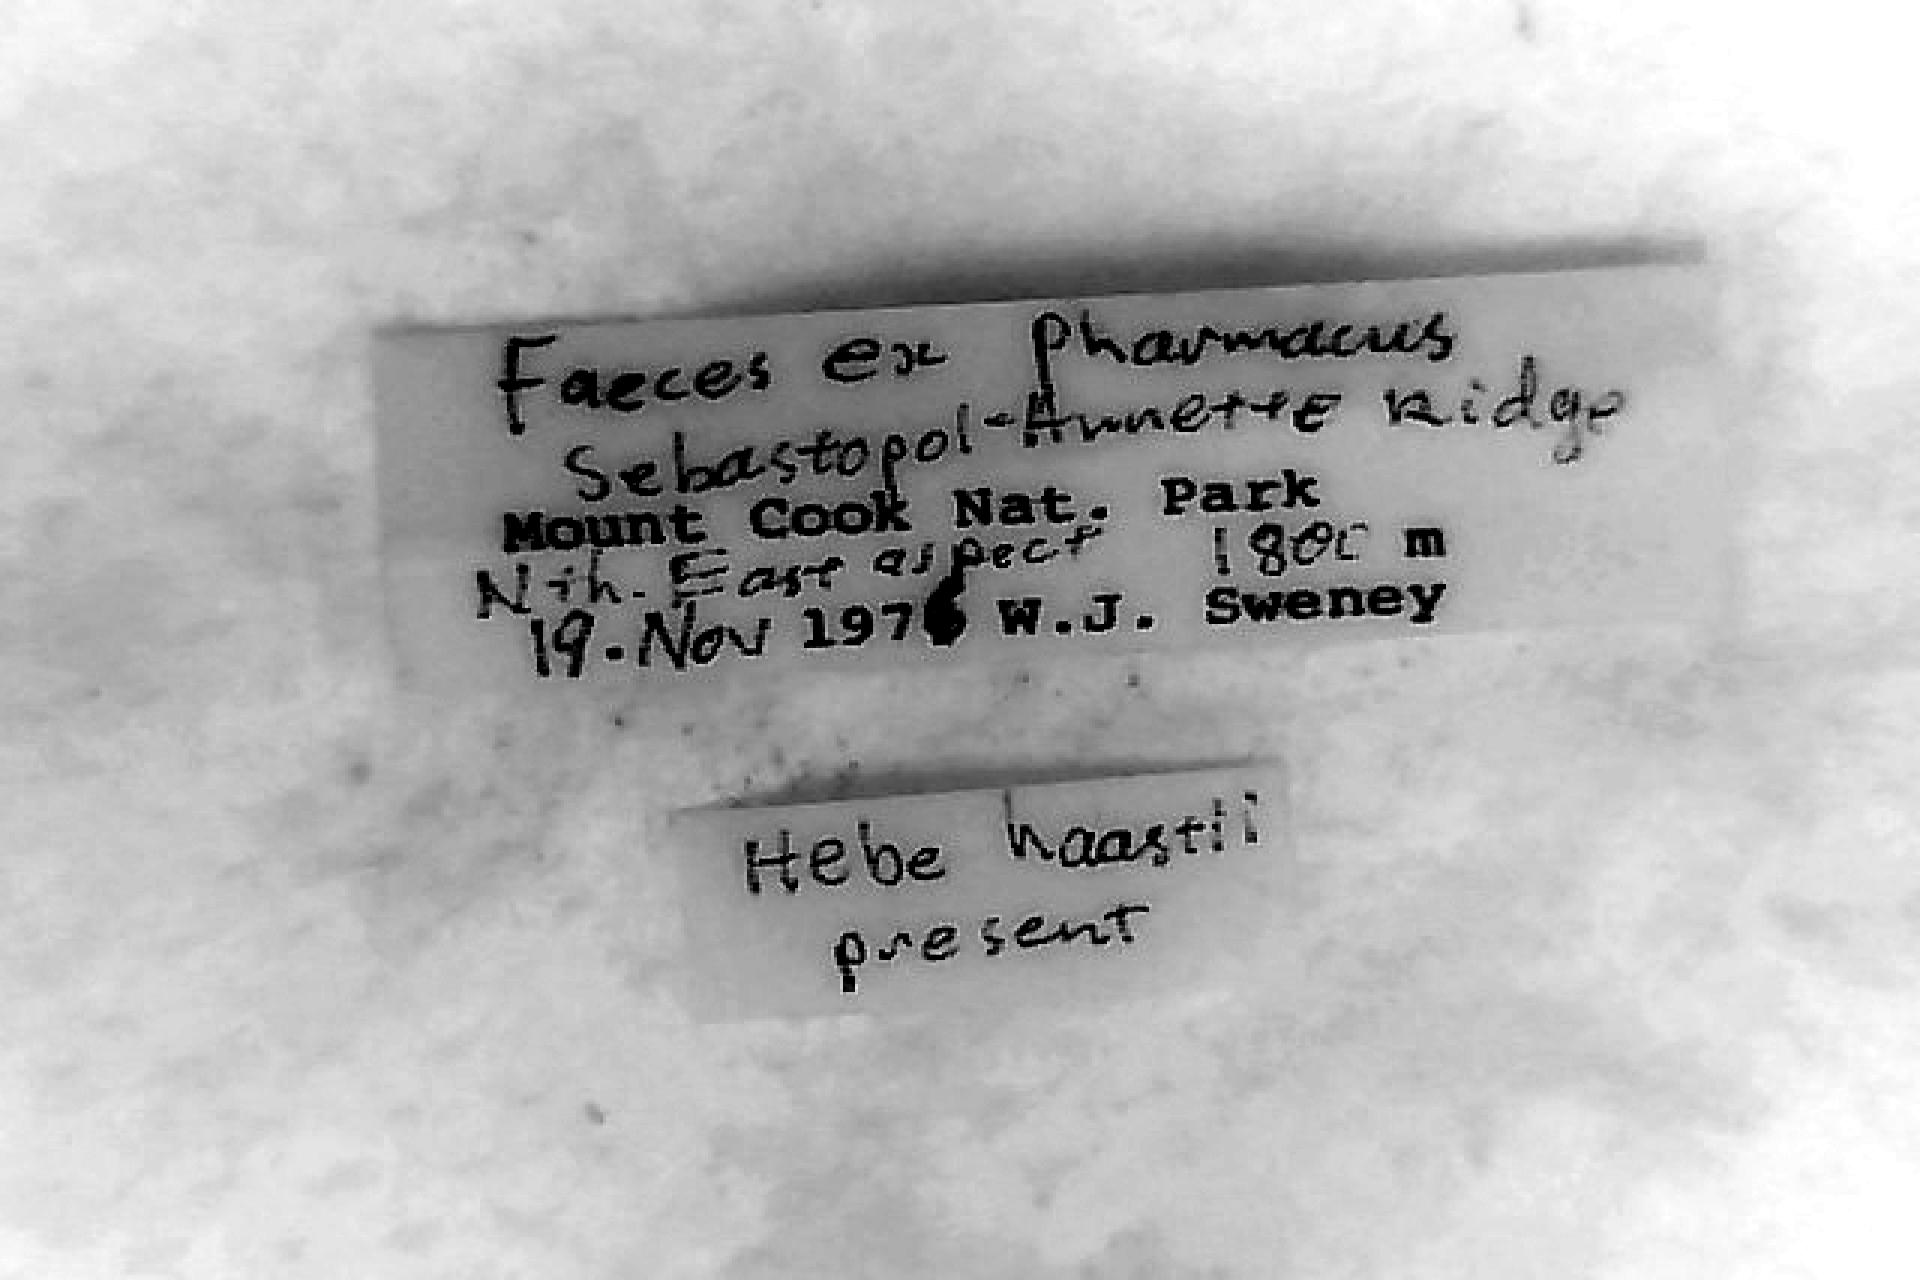 Faeces ex Pharmacus
Sebastopol-Annette Ridge
Mount Cook Nat. Park
Nth. East aspect 1800 m
19.Nov 1976 W.J. Sweney
Hebe haastii
present